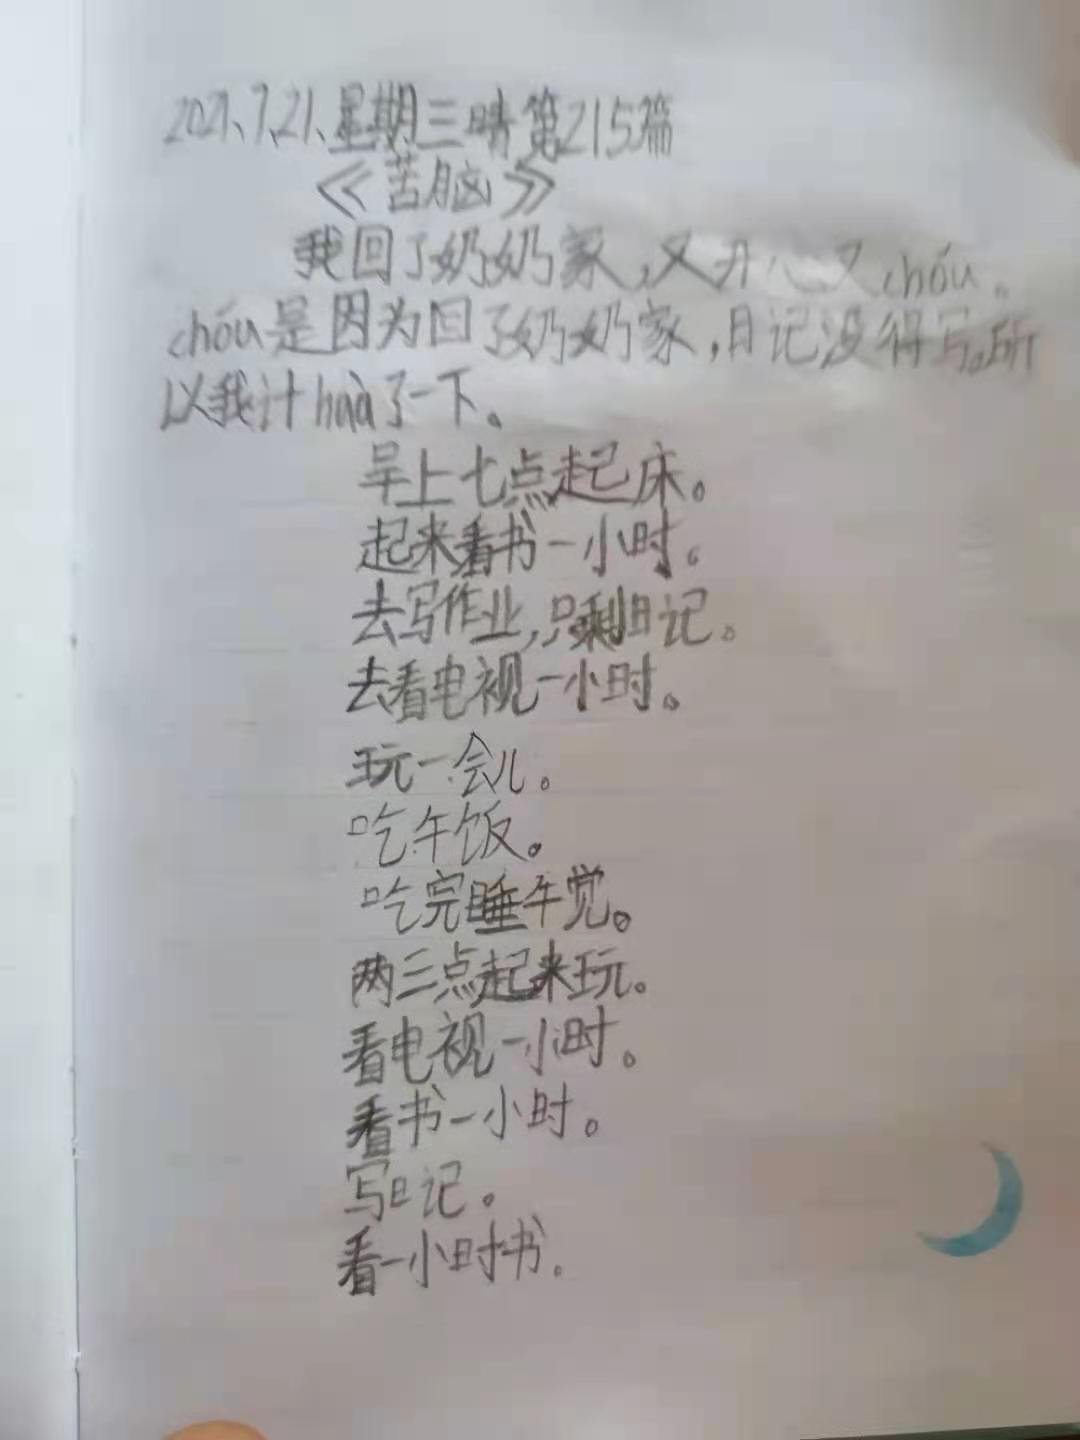 2021、7.21、星期三晴第215篇
《苦脑》
我回了奶奶家,又开心又chóu。
chóu是因为回了奶奶家,日记没得写。所
以我计huà了一下。
早上七点起床。
起来看书一小时。
去写作业,只剩日记。
去看电视一小时。
玩一会儿。
吃午饭。
吃完睡午觉。
两三点起来玩。
看电视一小时。
看书一小时。
写日记。
看一小时书.